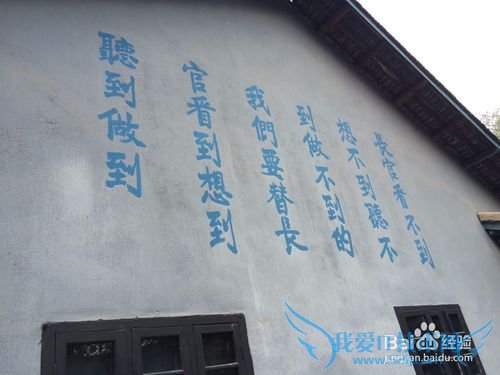 長官看不到
想不到聽不
到做不到的
我們要替長
官看到想到
聽到做到
我爱
Bai 经验
jingyan.baidu.com